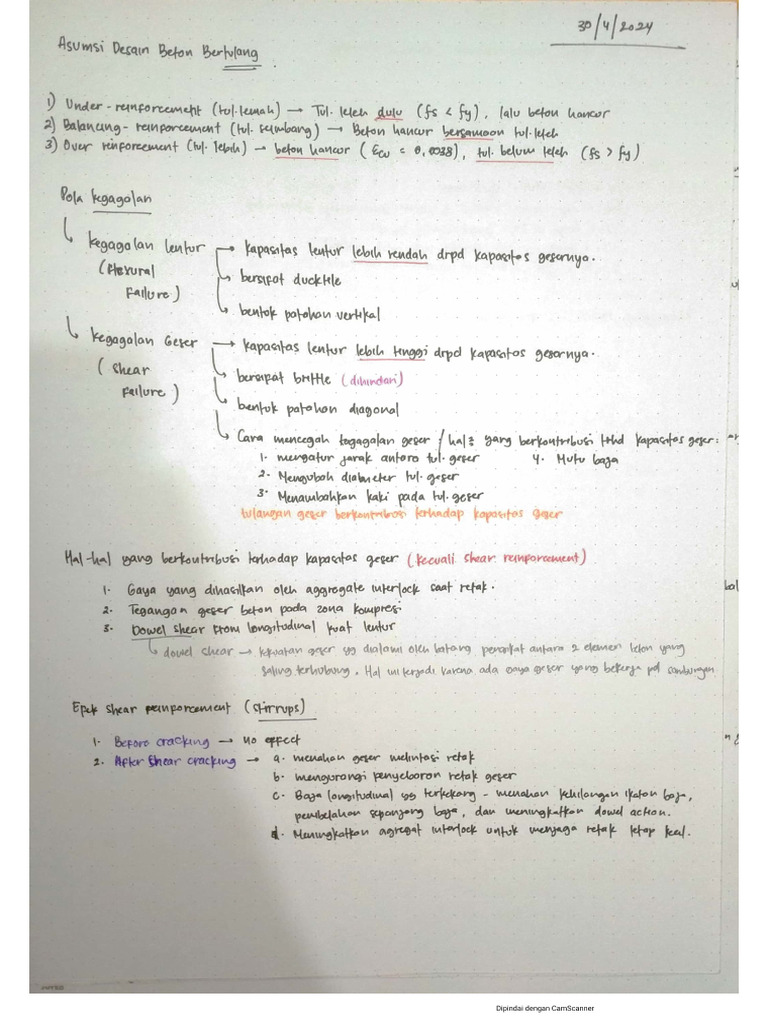 30/4/2024
Asumsi Desain Beton Bertulang
1) Under-reinforcement (tul. lemah) → Tul. leleh dulu (fs < fy), lalu beton hancur
2) Balancing-reinforcement (tul. seimbang) → Beton hancur bersamaan tul. leleh
3) Over reinforcement (tul. lebih) → beton hancur (εcu = 0,0038), tul. belum leleh (fs > fy)
Pola kegagalan
Kegagalan lentur → kapasitas lentur lebih rendah drpd kapasitas gesernya.
(Flexural
Failure)
bersifat ducktile
bentuk patahan vertikal
Kegagalan Geser → kapasitas lentur lebih tinggi drpd kapasitas gesernya.
(Shear
Failure)
bersifat brittle (dihindari)
bentuk patahan diagonal
Cara mencegah kegagalan geser / hal2 yang berkontribusi trhd kapasitas geser:
1. mengatur jarak antara tul. geser 4. Mutu baja
2. Mengubah diameter tul. geser
3. Menambahkan kaki pada tul. geser
tulangan geser berkontribusi terhadap kapasitas geser
Hal-hal yang berkontribusi terhadap kapasitas geser (kecuali shear reinforcement)
1. Gaya yang dihasilkan oleh aggregate interlock saat retak.
2. Tegangan geser beton pada zona kompresi
3. Dowel shear from longitudinal kuat lentur
dowel shear → kekuatan geser yg dialami oleh batang penyekat antara 2 elemen beton yang
saling terhubung. Hal ini terjadi karena ada gaya geser yang bekerja pd sambungan
Efek shear reinforcement (stirrups)
1. Before cracking → no effect
2. After shear cracking → a. menahan geser melintasi retak
b. mengurangi penyebaran retak geser
c. Baja longitudinal yg terkekang - menahan kehilangan ikatan baja,
pembelahan sepanjang baja, dan meningkatkan dowel action.
d. Meningkatkan agregat interlock untuk menjaga retak tetap kecil.
Dipindai dengan CamScanner